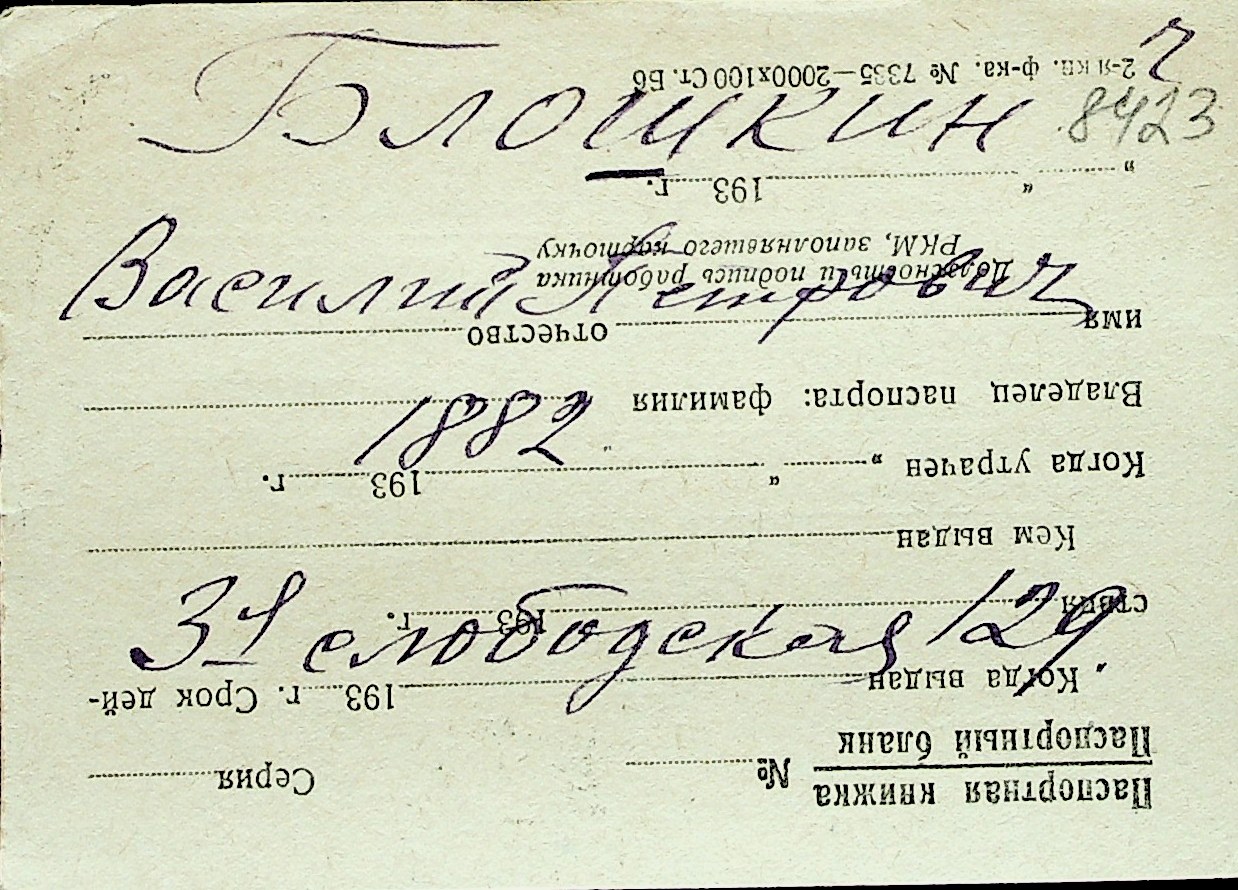 Блошкин 8423
Василий Петрович
1882
3я слободская 129.
Паспортная книжка
Паспортный бланк № Серия
Когда выдан 193 г. Срок дей-
ствия 193 г.
Кем выдан
Когда утрачен „ “ 193 г.
Владелец паспорта: фамилия
имя отчество
Должность и подпись работника
РКМ, заполнявшего карточку
„ “ 193 г.
2-я кп. ф-ка. № 7335—2000х100 Ст. Бб